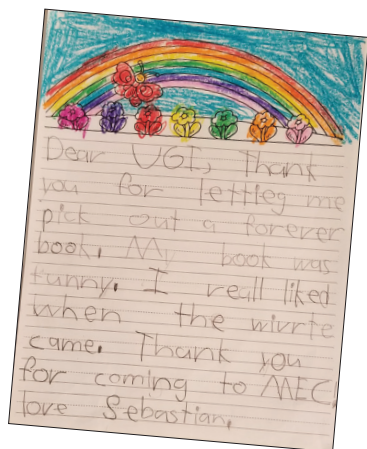 Dear UGI, Thank
you for lettieg me
pick out a forever
book. My book was
funny. I reall liked
when the wivrte
came. Thank you
for coming to MEC!
love Sebastian.